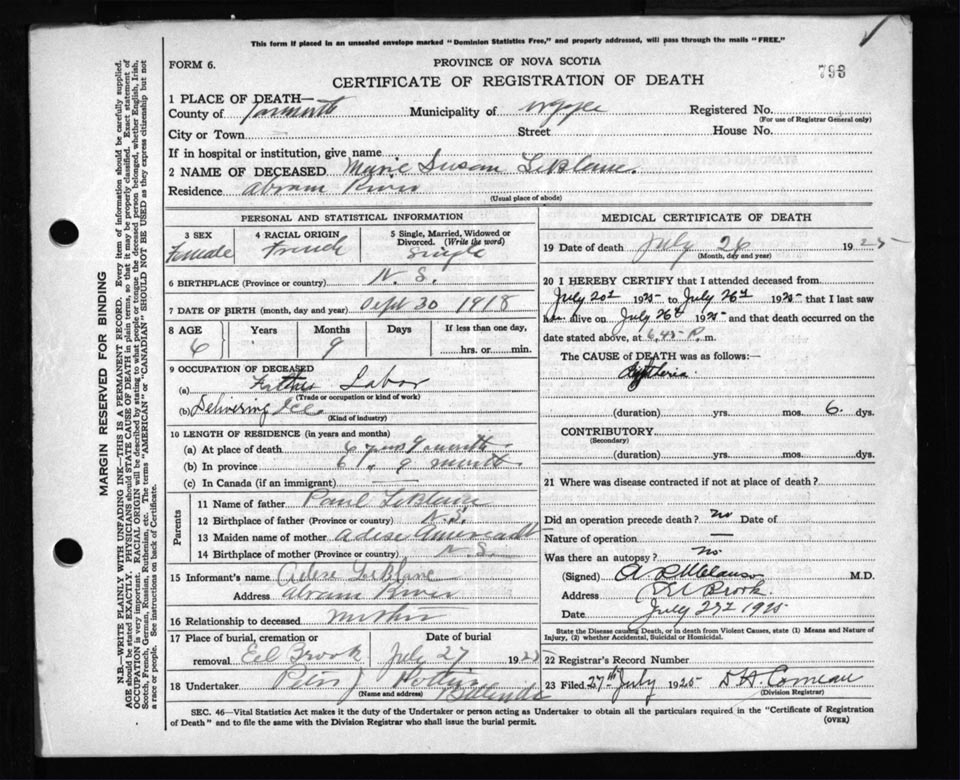 This form if placed in an unsealed envelope marked "Dominion Statistics Free," and properly addressed, will pass through the mails "FREE."
FORM 6.
PROVINCE OF NOVA SCOTIA
793
CERTIFICATE OF REGISTRATION OF DEATH
1 PLACE OF DEATH—
County of Yarmouth Municipality of Argyle Registered No.
(For use of Registrar General only)
City or Town Street House No.
If in hospital or institution, give name
2 NAME OF DECEASED Marie Susan LeBlanc.
Residence Abram River
(Usual place of abode)
PERSONAL AND STATISTICAL INFORMATION
3 SEX
Female
4 RACIAL ORIGIN
French
5 Single, Married, Widowed or Divorced. (Write the word)
Single
6 BIRTHPLACE (Province or country) N. S.
7 DATE OF BIRTH (month, day and year) Sept 30 1918
8 AGE Years Months Days If less than one day,
6 9 hrs. or min.
9 OCCUPATION OF DECEASED
(a) Labor
(Trade or occupation or kind of work)
(b) Delivering Ice.
(Kind of industry)
10 LENGTH OF RESIDENCE (in years and months)
(a) At place of death 6 years 9 month
(b) In province 6 " 9 month
(c) In Canada (if an immigrant)
Parents
11 Name of father Paul LeBlanc
12 Birthplace of father (Province or country) N. S.
13 Maiden name of mother Adese
14 Birthplace of mother (Province or country) N. S.
15 Informant's name Adese LeBlanc
Address Abram River
16 Relationship to deceased mother
17 Place of burial, cremation or removal Eel Brook
Date of burial July 27 1925
18 Undertaker J Pottier Belleville
(Name and address)
MEDICAL CERTIFICATE OF DEATH
19 Date of death July 26 1925
(Month, day and year)
20 I HEREBY CERTIFY that I attended deceased from
July 20th 1925 to July 26th 1925 that I last saw
her alive on July 26th 1925 and that death occurred on the
date stated above, at 6.45 P. m.
The CAUSE of DEATH was as follows:
Diphtheria
(duration) yrs. mos. 6. dys.
CONTRIBUTORY
(Secondary)
(duration) yrs. mos. dys.
21 Where was disease contracted if not at place of death?
Did an operation precede death? no Date of
Nature of operation —
Was there an autopsy? no
(Signed) M.D.
Address Eel Brook
Date July 27th 1925
State the Disease causing Death, or in death from Violent Causes, state (1) Means and Nature of Injury, (2) whether Accidental, Suicidal or Homicidal.
22 Registrar's Record Number
23 Filed 27th July 1925 Comeau
(Division Registrar)
SEC. 46—Vital Statistics Act makes it the duty of the Undertaker or person acting as Undertaker to obtain all the particulars required in the "Certificate of Registration
of Death" and to file the same with the Division Registrar who shall issue the burial permit.
(OVER)
MARGIN RESERVED FOR BINDING
N.B.—WRITE PLAINLY WITH UNFADING INK—THIS IS A PERMANENT RECORD. Every item of information should be carefully supplied.
AGE should be stated EXACTLY. PHYSICIANS should STATE CAUSE OF DEATH in plain terms, so that it may be properly classified. Exact statement of
OCCUPATION is very important. RACIAL ORIGIN will be described by stating to what people or tongue the deceased person belonged, whether English, Irish,
Scotch, French, German, Russian, Ruthenian, etc. The terms "AMERICAN" or "CANADIAN" SHOULD NOT BE USED as they express citizenship but not
a race or people. See instructions on back of Certificate.